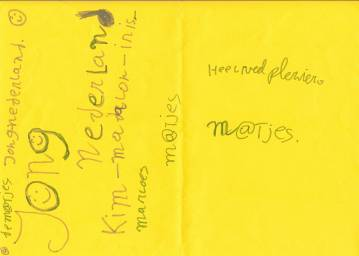 @ dematjes Jongnederland.
Jong
Nederland
Kim-manon-iris
marloes
m@tjes
Heel veel plezier
m@Tjes.